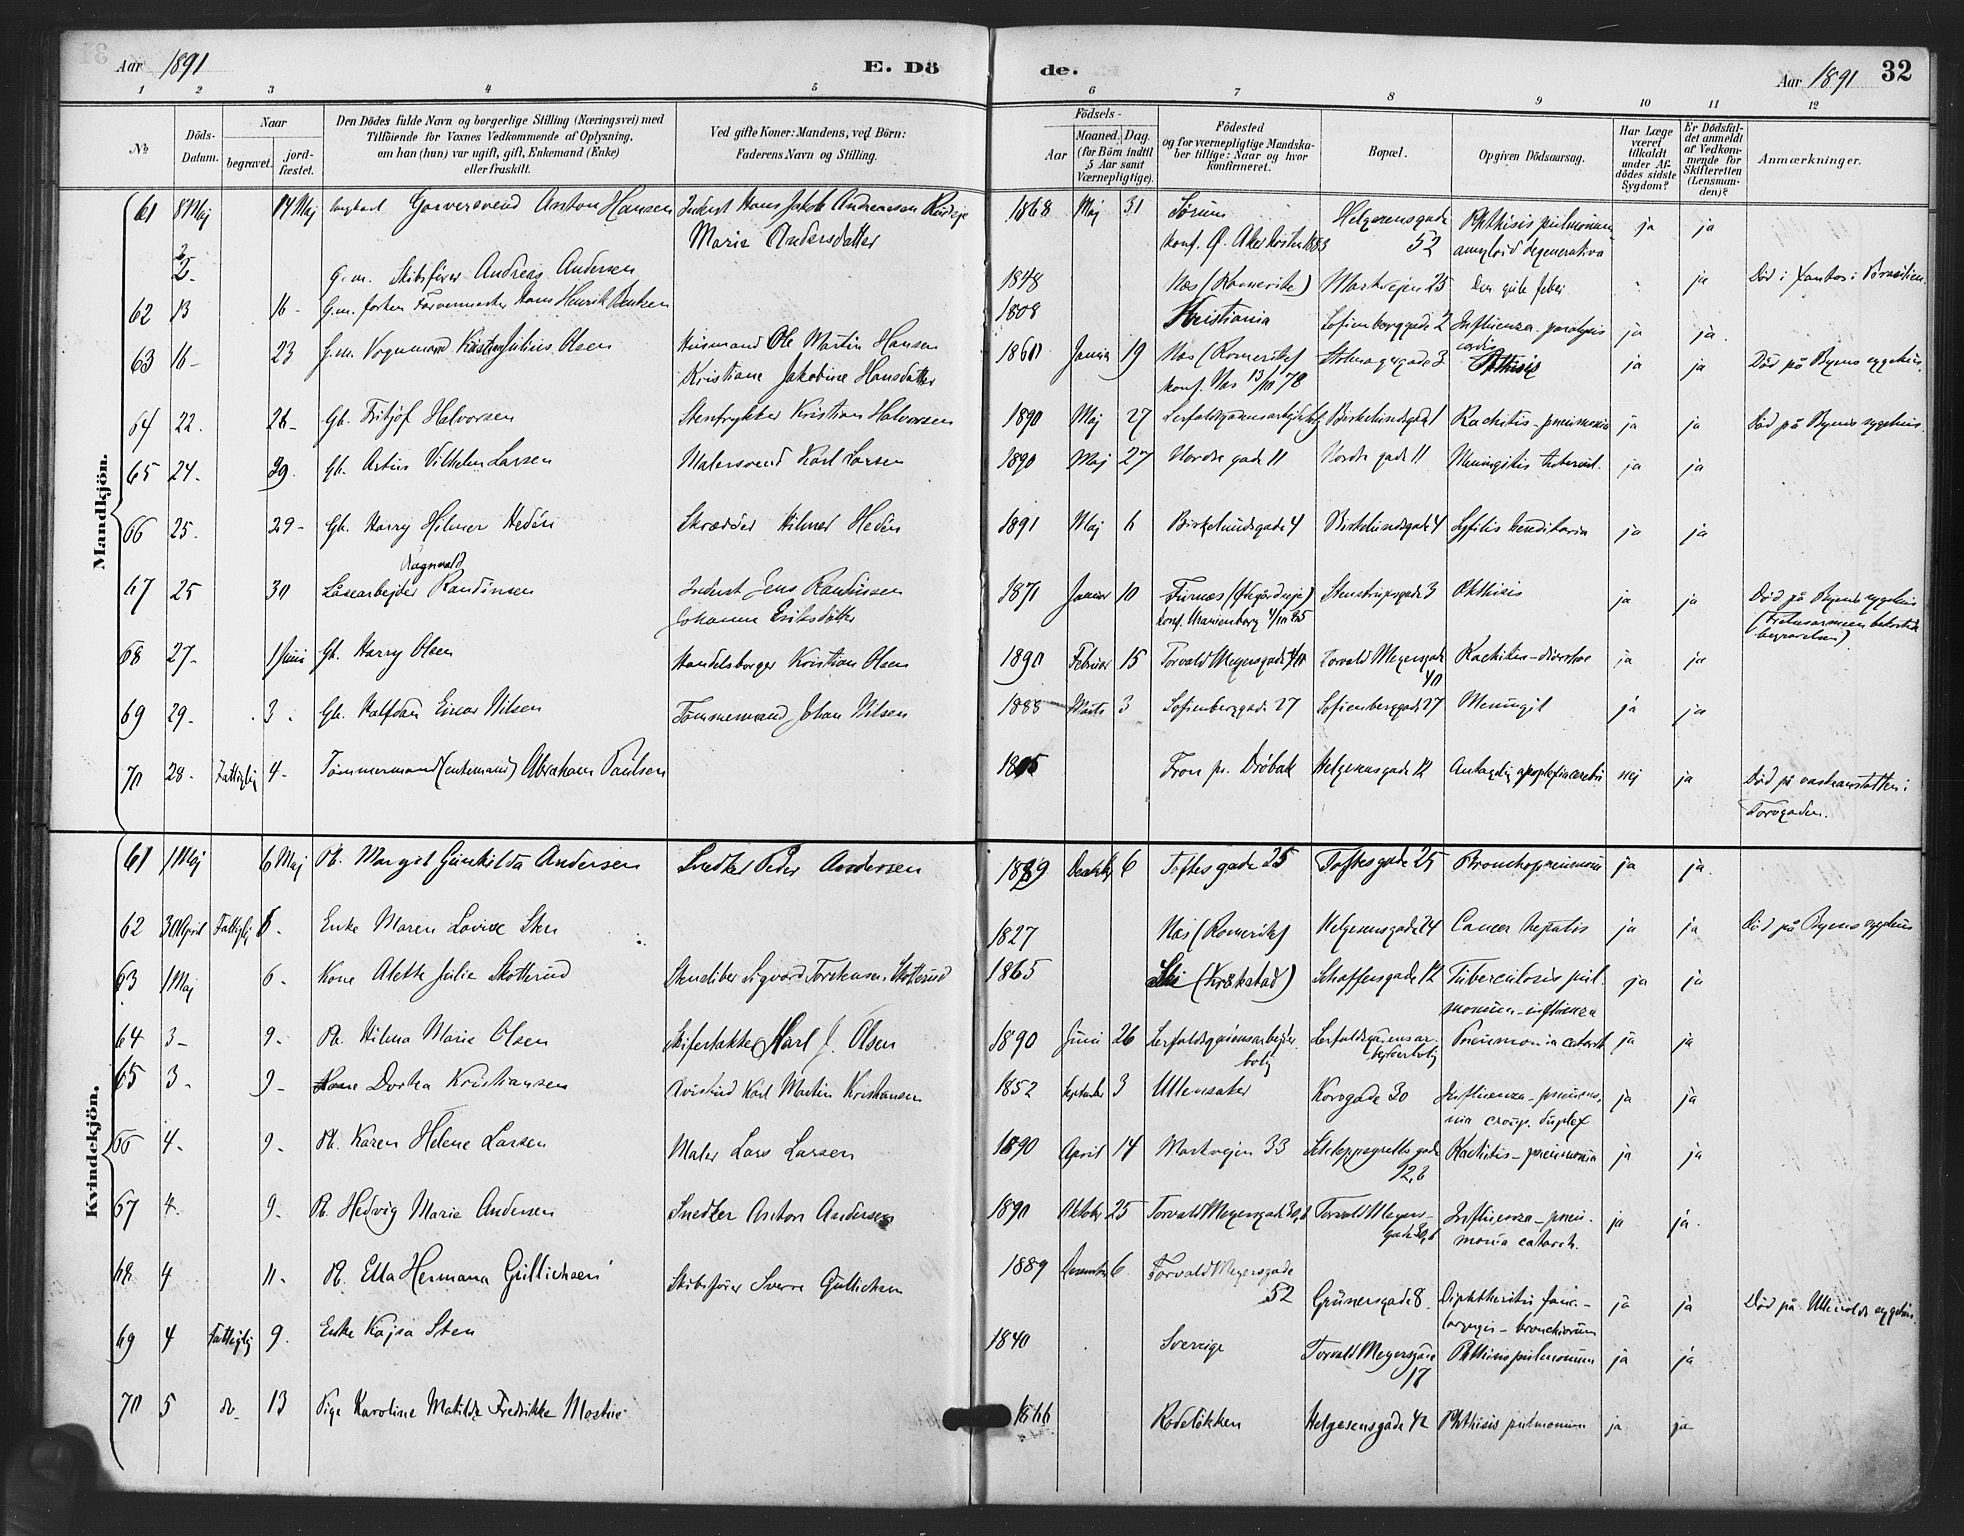 Aar 1891 E. Dö
1 2 3 4 5
№ Döds-Datum. Naar begravet. jordfæstet. Den Dödes fulde Navn og borgerlige Stilling (Næringsvei) med Tilföiende for Voxnes Vedkommende af Oplysning, om han (hun) var ugift, gift, Enkemand (Enke) eller fraskilt. Ved gifte Koner: Mandens, ved Börn: Faderens Navn og Stilling.
de. Aar 1891 32
6 7 8 9 10 11 12
Födsels- Aar Maaned. Dag. (for Börn indtil 5 Aar samt Værnepligtige). Födested og for værnepligtige Mandskaber tillige: Naar og hvor konfirmeret. Bopæl. Opgiven Dödsaarsag. Har Læge været tilkaldt under Afdödes sidste Sygdom? Er Dödsfaldet anmeldt af Vedkommende for Skifteretten (Lensmanden)? Anmærkninger.
Mandkjön.
61 8 Maj 14 Maj Garversvend Anton Hansen Inderst Hans Jakob Andreassen 1868 Maj 31 Sørum Helgesensgade Phthisis pulmonum ja ja
Marie Andersdatter konf. Ø. Aker 1883 52 amyloid degenerativa
G.m. Skibsfører Andreas Andersen 1848 Næs (Romerike) Markvejen 25 Den gule feber - ja Död i Santos i Brasilien.
62 13 16 - G.m. forhen Farvermester Hans Henrik 1808 Kristiania Sofienberggade 2 Influenza. paralysis cordis ja ja.
63 16 - 23 G.m. Vognmand Kristen Julius Olsen Husmand Ole Martin Hansen 1860 Januar 19 Næs (Romerike) 3 Phthisis ja ja Död på Byens sygehus.
Kristiane Jakobine Hansdatter konf. Næs 13/10 78
64 22. 26 - Gb. Fritjof Halvorsen Stentrykker Kristian Halvorsen 1890 Maj 27 Birkelundsgade 1 Rachitis - pneumonia ja ja Död på Byens sygehus.
65 24. 29. Gb. Artur Vilhelm Larsen Malersvend Karl Larsen 1890 Maj 27 Nordre gade 11 Nordre gade 11 Meningitis tubercul. ja ja
66 25. 29 - Gb. Harry Hilmer Hedén Skrædder Hilmer Hedén 1891 Maj 6 Birkelundsgade 4 Birkelundsgade 4 Syfilis ja ja
67 25 30 Løsearbejder Ragnvald Randinsen Inderst Jens Randinsen 1871 Januar 10 Furnæs Stenstrupsgade 3 Phthisis ja ja Död på Byens sygehus
Johanne Eriksdatter konf. Marienberg 4/10 85 (Frelsesarmeen bekosted begravelsen)
68 27 - 1 Juni Gb. Harry Olsen Handelsborger Kristian Olsen 1890 Februar 15 Torvald Meyersgade 40 Torvald Meyersgade 40 Rachitis - diarrhoe ja ja
69 29 - 3 - Gb. Halfdan Einar Nilsen Tømmermand Johan Nilsen 1888 Marts 3 Sofienberggade 27 Sofienberggade 27 Meningit ja ja
70 28 - Fattiglig 4 - Tømmermand (enkemand) Abraham Paulsen 1805 Fron pr. Drøbak Helgesensgade 12 Antagelig apoplexia cerebri nej ja Död på
Torvgaden.
Kvindekjön.
61 1 Maj 6 Maj Pb. Margit Gunhilda Andersen Snedker Peder Andersen 1889 Decebr 6 Toftesgade 25 Toftesgade 25 Bronchopneumoni ja ja.
62 30 April Fattiglig 6 - Enke Maren Lovise Sten 1827 Næs (Romerike) Helgesensgade 24 Cancer hepatis ja ja Död på Byens sygehus
63 1 Maj 6 - Kone Alette Julie Skotterud Stensliber Sigvard Torstensen Skotterud 1865 Ski (Kråkstad) Schaffersgade 12 Tuberculosis pulmonum - influenza ja ja
64 3 - 9 - Pb. Hilma Marie Olsen Skifertækker Karl J. Olsen 1890 Juni 26 Lerfaldsgaiensarbejderbolig Lerfaldsgaiensarbejderbolig Pneumonia catarrh ja ja
65 3 - 9 - Kone Dortea Kristiansen Avisbud Karl Martin Kristiansen 1852 September 3 Ullensaker Korsgade 30 Influenza - pneumonia croup. duplex ja ja
66 4 - 9 - Pb. Karen Helene Larsen Maler Lars Larsen 1890 April 14 Markvejen 33 Schleppegrells gade 12,b Rachitis - pneumonia ja ja
67 4. 9 - Pb. Hedvig Marie Andersen Snedker Anton Andersen 1890 Oktober 25 Torvald Meyersgade 30,b Torvald Meyersgade 30,b Influenza - pneumonia catarrh. ja ja.
68 4 11 - Pb. Ella Hermana Gullichsen Skibsfører Sverre Gullichsen 1889 December 6 Torvald Meyersgade 52 Grünersgade 8 Diphtheritis fauc- laryngis - bronchiorum ja ja Död på Ullevolds sygehus.
69 4 Fattiglig 9. Enke Kajsa Sten 1840 Sverige Torvald Meyersgade 17 Phthisis pulmonum ja ja
70 5 do. 13 Pige Karoline Matilde Fredrikke Mostue 1866 Rodeløkken Helgesensgade 42 Phthisis pulmonum ja ja